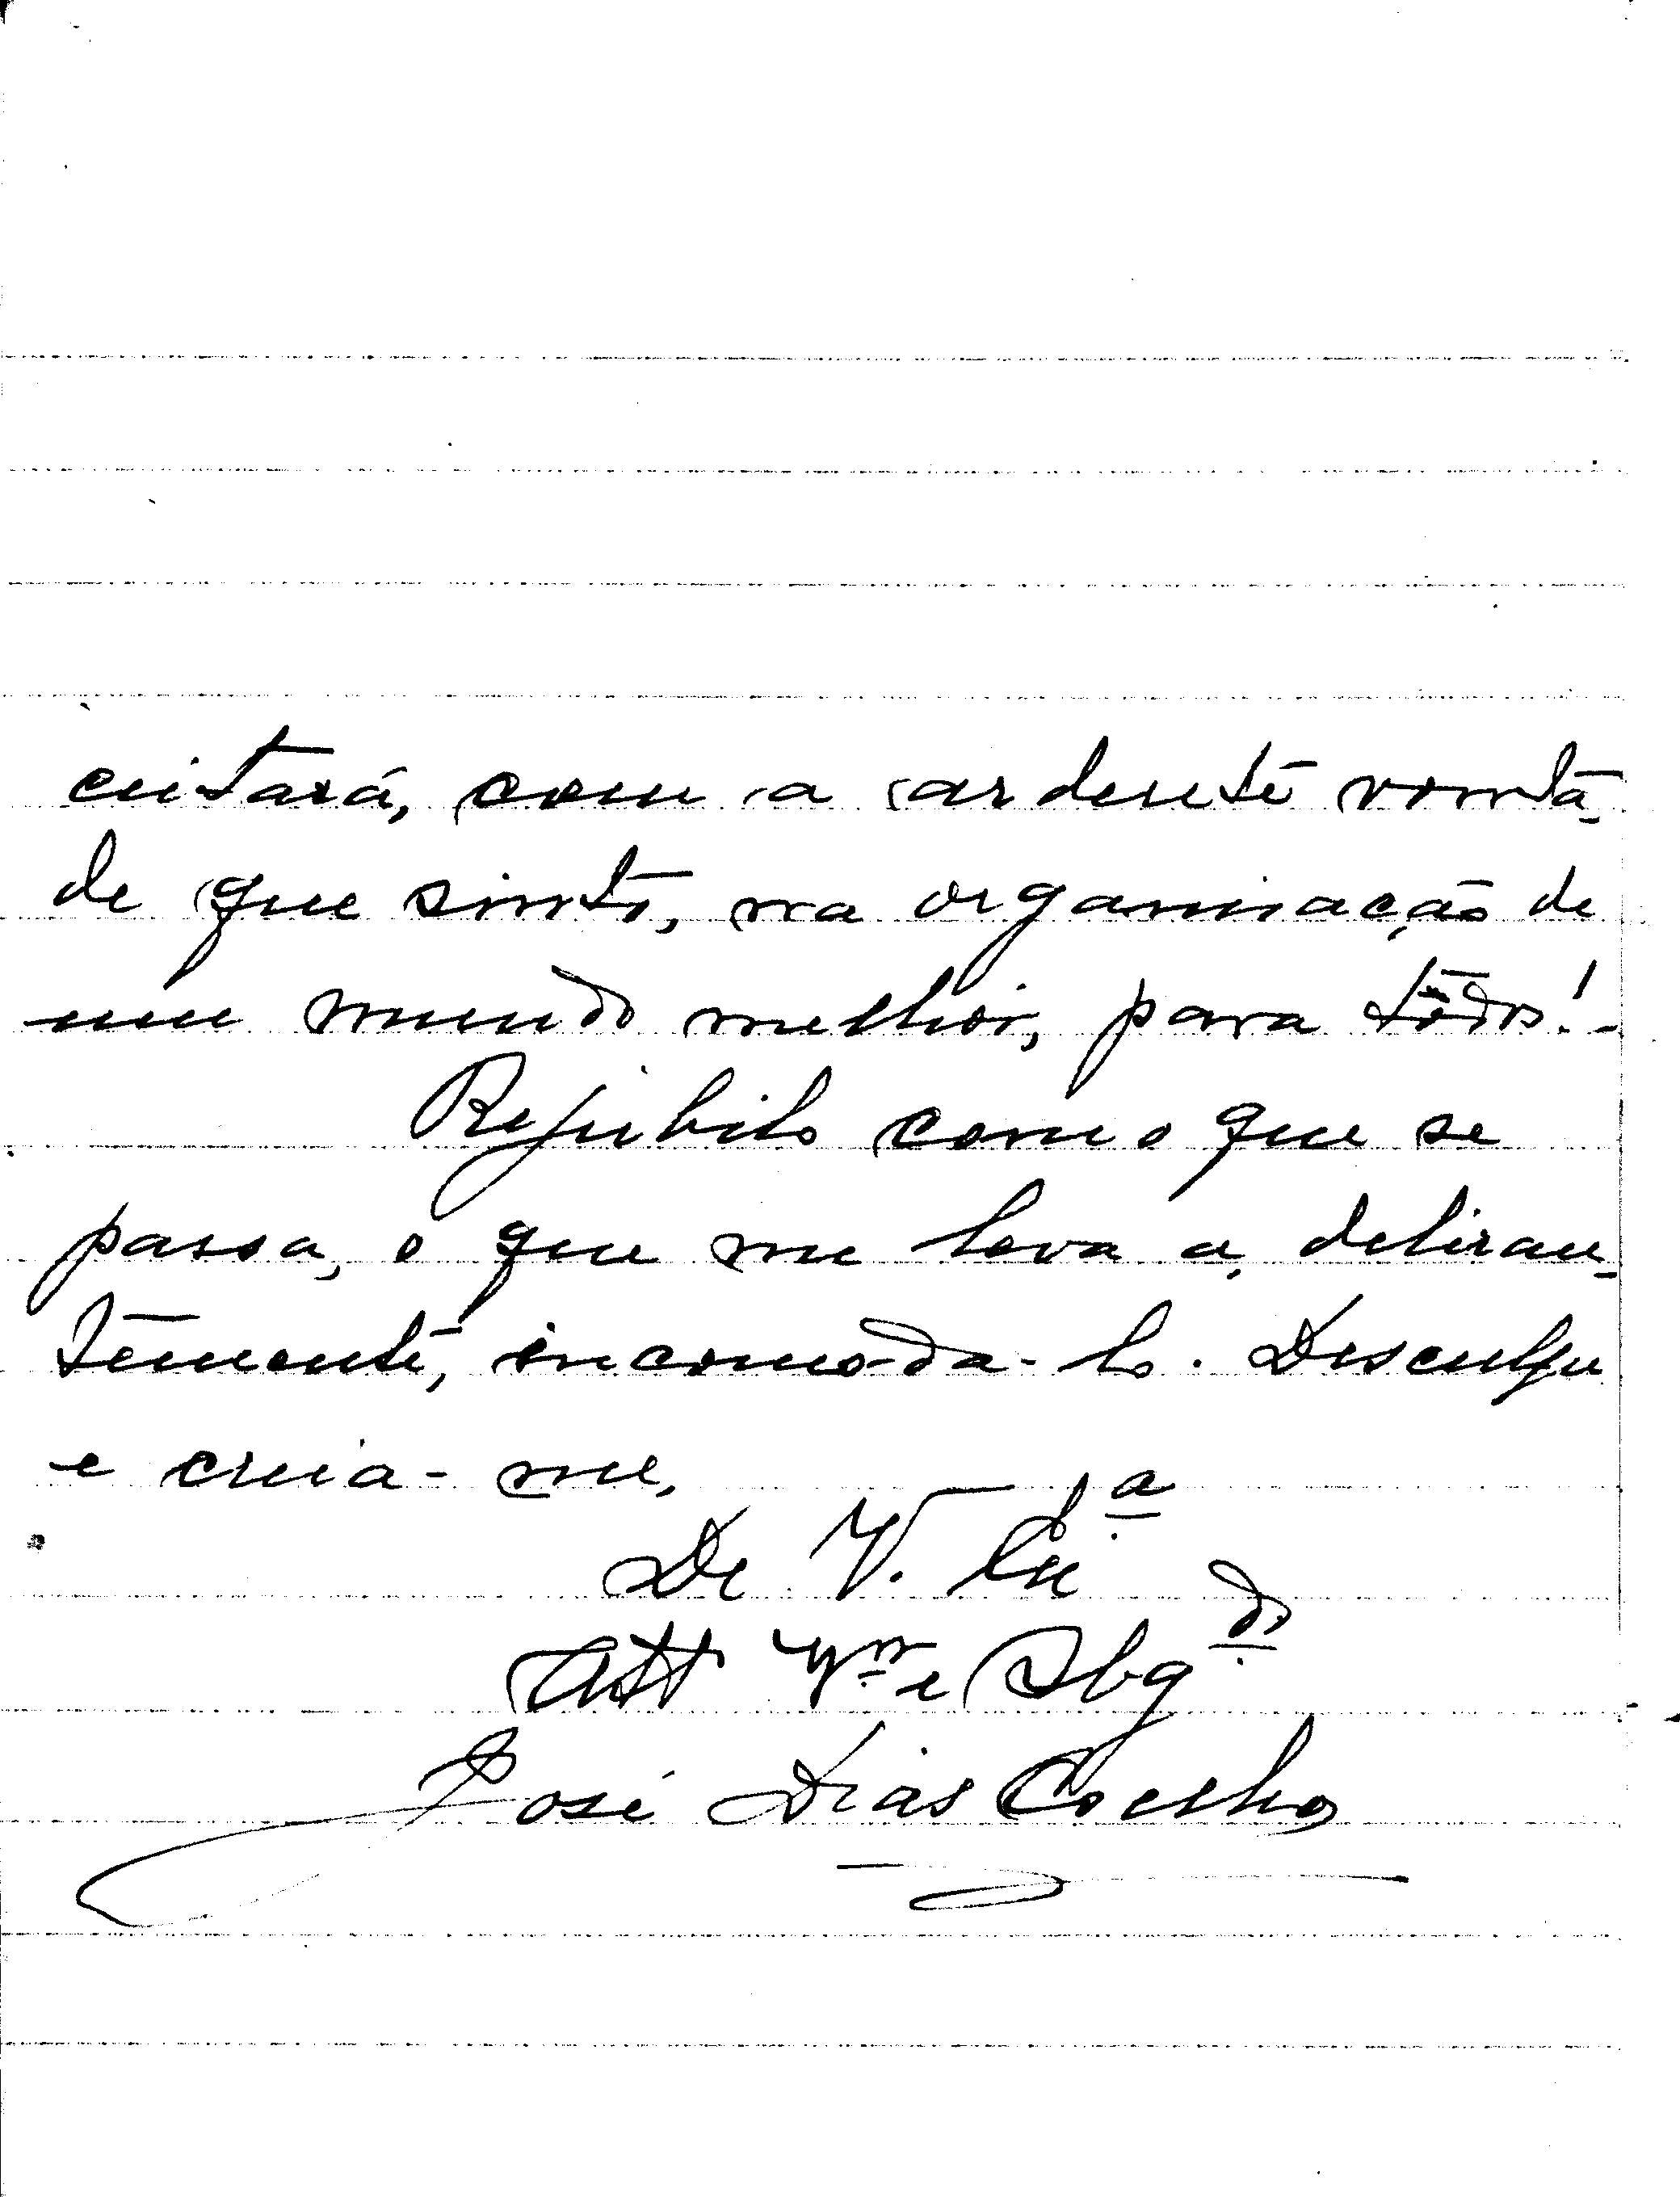 citará, com a ardente vontá-
de que sinto, na organisação de
um mundo melhor, para todos!-
Rejubilo com o que se
passa, o que me leva a, deliran-
temente, incomoda-lo. Desculpe
e creia-me,
De V. Exª
Att Vnr e Obgdº
José Dias Coelho